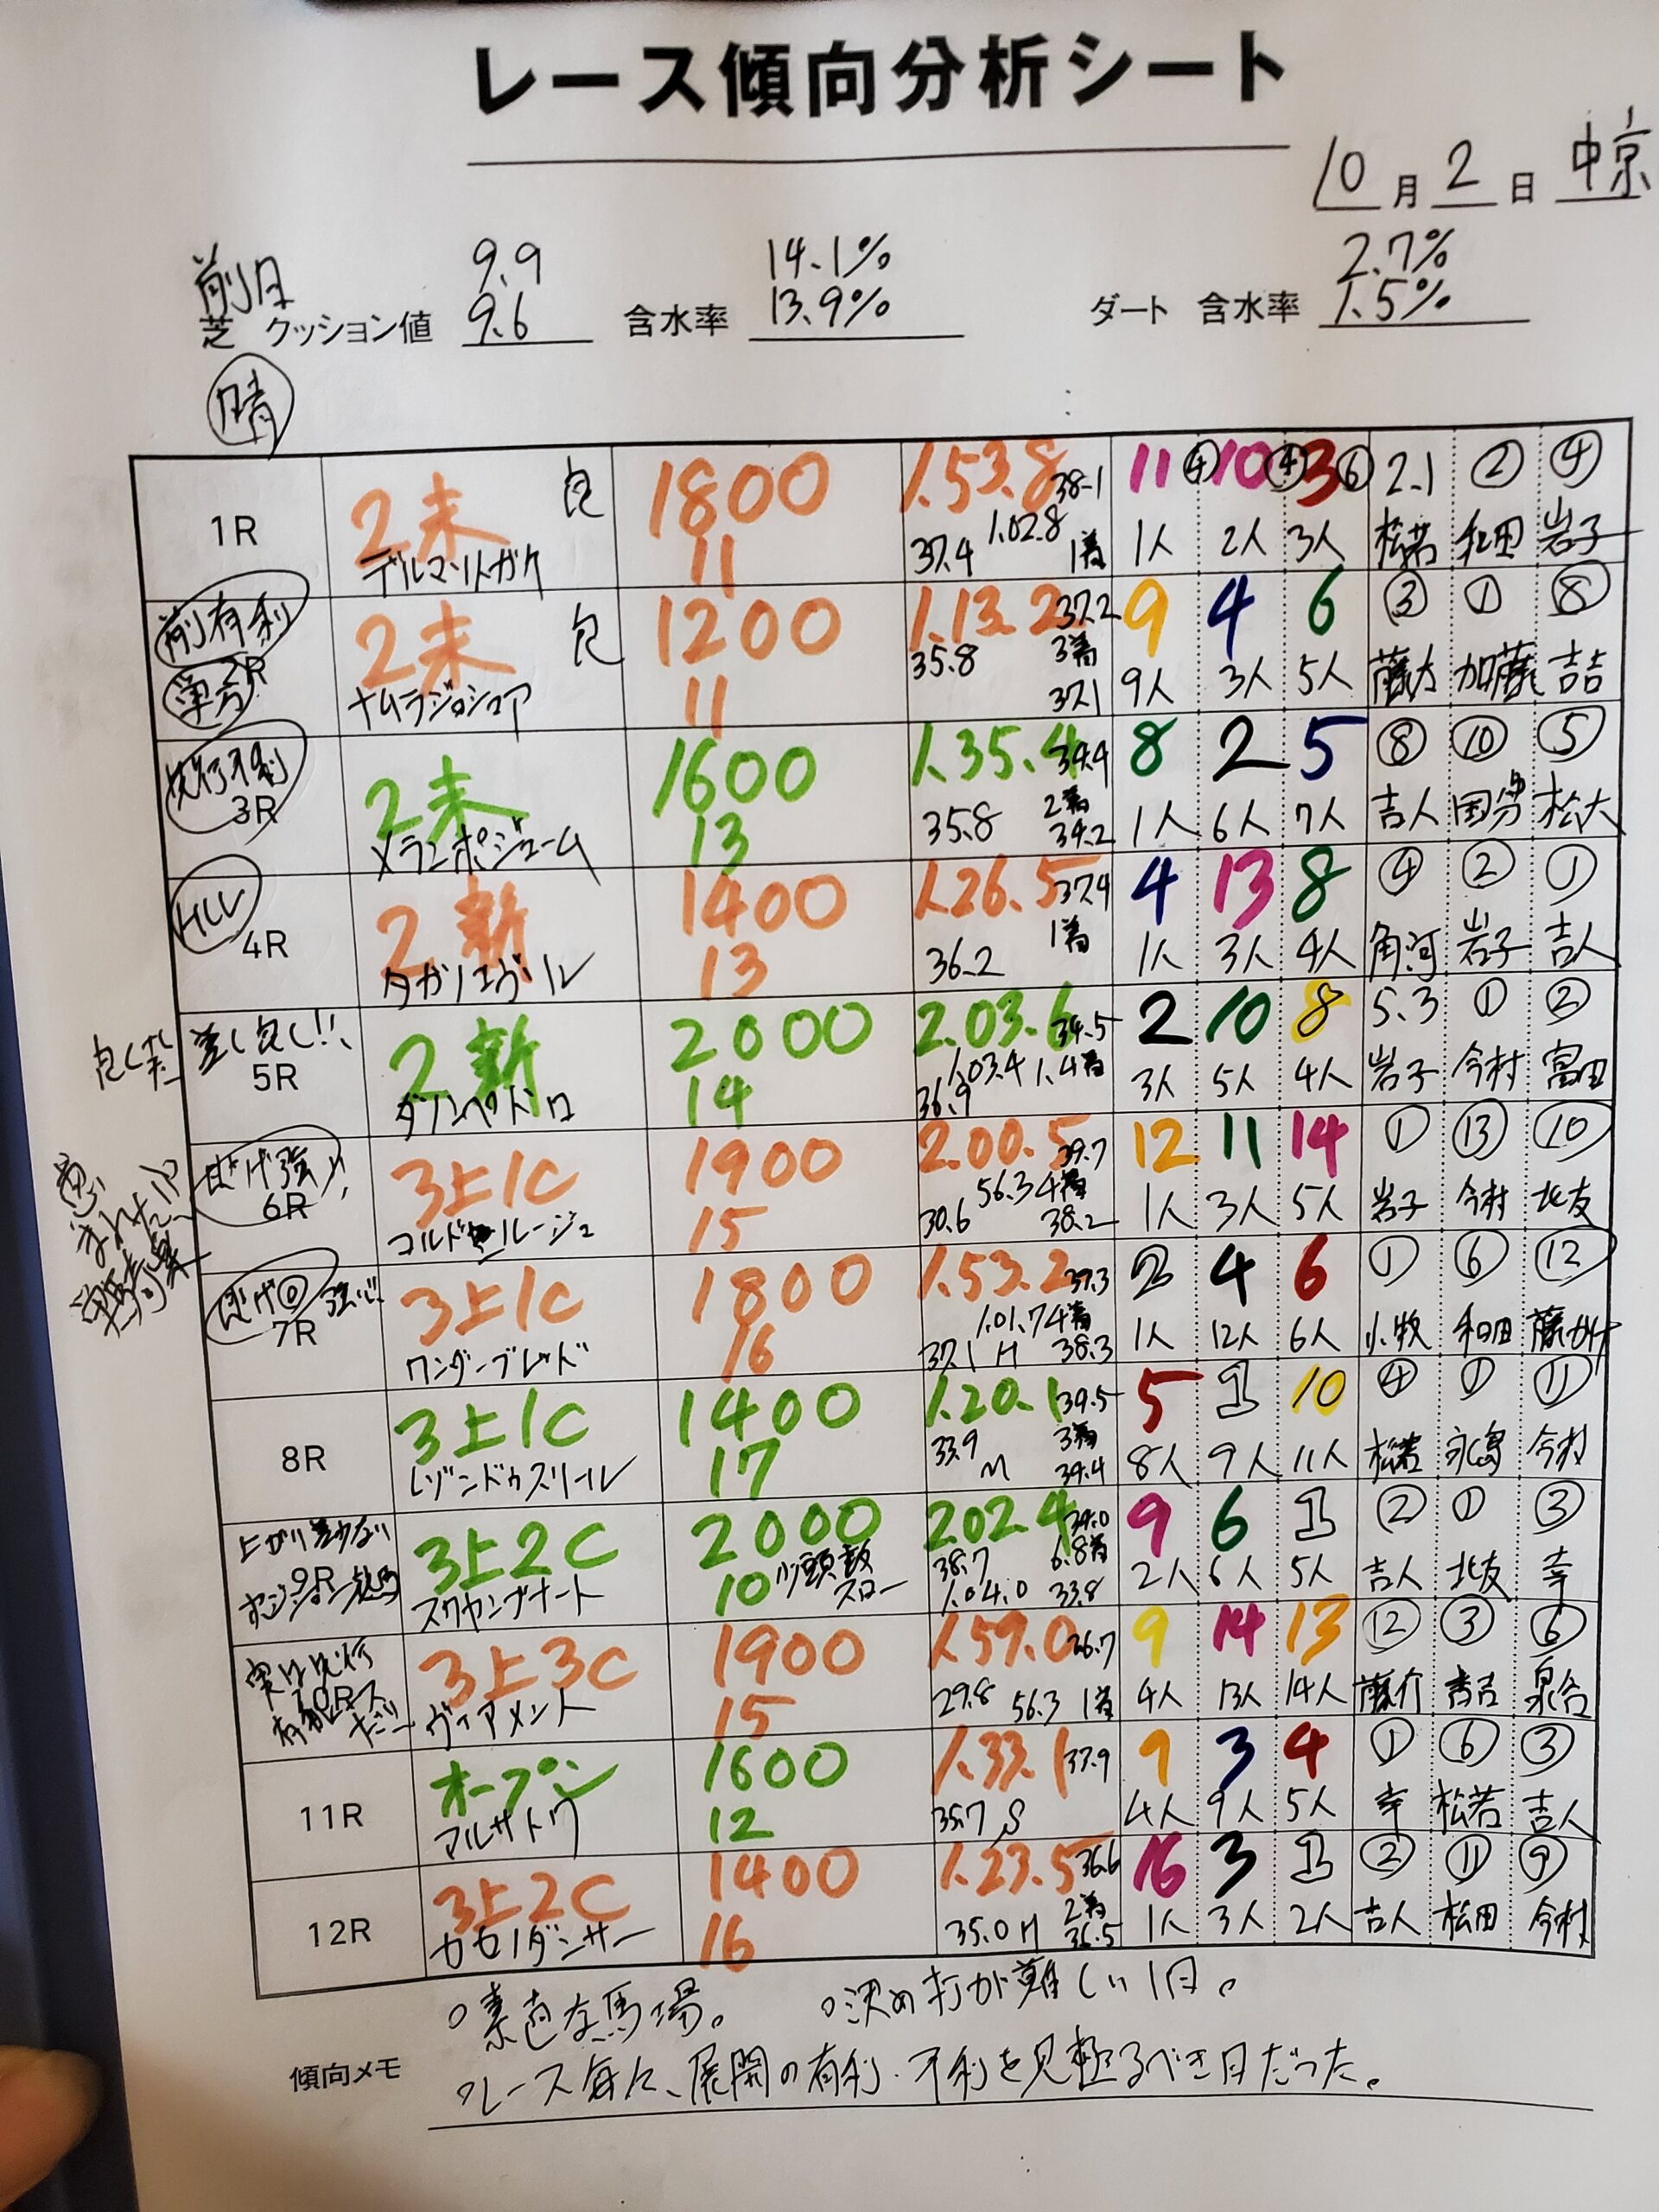 レース傾向分析シート
10月2日 中京
前日 9.9 14.1% 2.7%
芝 クッション値 9.6 含水率 13.9% ダート 含水率 1.5%
晴
1R 2未 良 1800 1.53.8 38.1 11 ④ 10 ④ 3 ⑥ 2.1 ② ④
11 37.4 1.02.8 1着 1人 2人 3人 松若 和田 岩子
前有利
2R 2未 良 1200 1.13.2 37.2 9 4 6 ③ ① ⑧
ナムラジョシュア 11 35.8 3着 37.1 9人 3人 5人 加藤 吉
3R 2未 1600 1.35.4 34.4 8 2 5 ⑧ ⑩ ⑤
メランポジューム 13 35.8 2着 34.2 1人 6人 7人 吉人 国分 松大
4R 2新 1400 1.26.5 37.4 4 13 8 ④ ② ①
タガノエヴール 13 36.2 1着 1人 3人 4人 角河 岩子 吉人
差し良し!!
5R 2新 2000 2.03.6 34.5 2 10 8 5.3 ① ②
14 36.9 1.03.4 1.4着 3人 5人 4人 岩子 今村 富田
6R 3上1C 1900 2.00.5 39.7 12 11 14 ① ⑬ ⑩
コルドンルージュ 15 30.6 56.3 4着 38.2 1人 3人 5人 岩子 今村 北友
7R 3上1C 1800 1.53.2 39.3 2 4 6 ① ⑥ ⑫
ワンダーブレッド 16 37.1 H 1.01.7 4着 38.3 1人 12人 6人 小牧 和田
8R 3上1C 1400 1.20.1 5 1 10 ④ ① ⑪
レゾンドゥスリール 17 33.9 M 3着 34.4 8人 9人 11人 松若 永島 今村
上がり差少ない
9R 3上2C 2000 2.02.4 34.0 9 6 1 ② ① ③
10 少頭数 スロー 38.7 1.04.0 6.8着 33.8 2人 6人 5人 吉人 北友 幸
実は先行
10R 3上3C 1900 1.59.0 9 14 13 ⑫ ③ ⑥
ヴィアメント 15 29.8 56.3 1着 4人 13人 14人 藤介 泉谷
11R オープン 1600 1.33.1 33.9 9 3 4 ① ⑥ ③
マルサトワ 12 35.7 S 4人 9人 5人 幸 松若 吉人
12R 3上2C 1400 1.23.5 36.6 16 3 1 ② ⑪ ⑨
カセノダンサー 16 35.0 H 2着 36.5 1人 3人 2人 吉人 松田 今村
○素直な馬場。 ○決め打が難しい1日。
傾向メモ ○レース毎に、展開の有利・不利を見極るべき日だった。